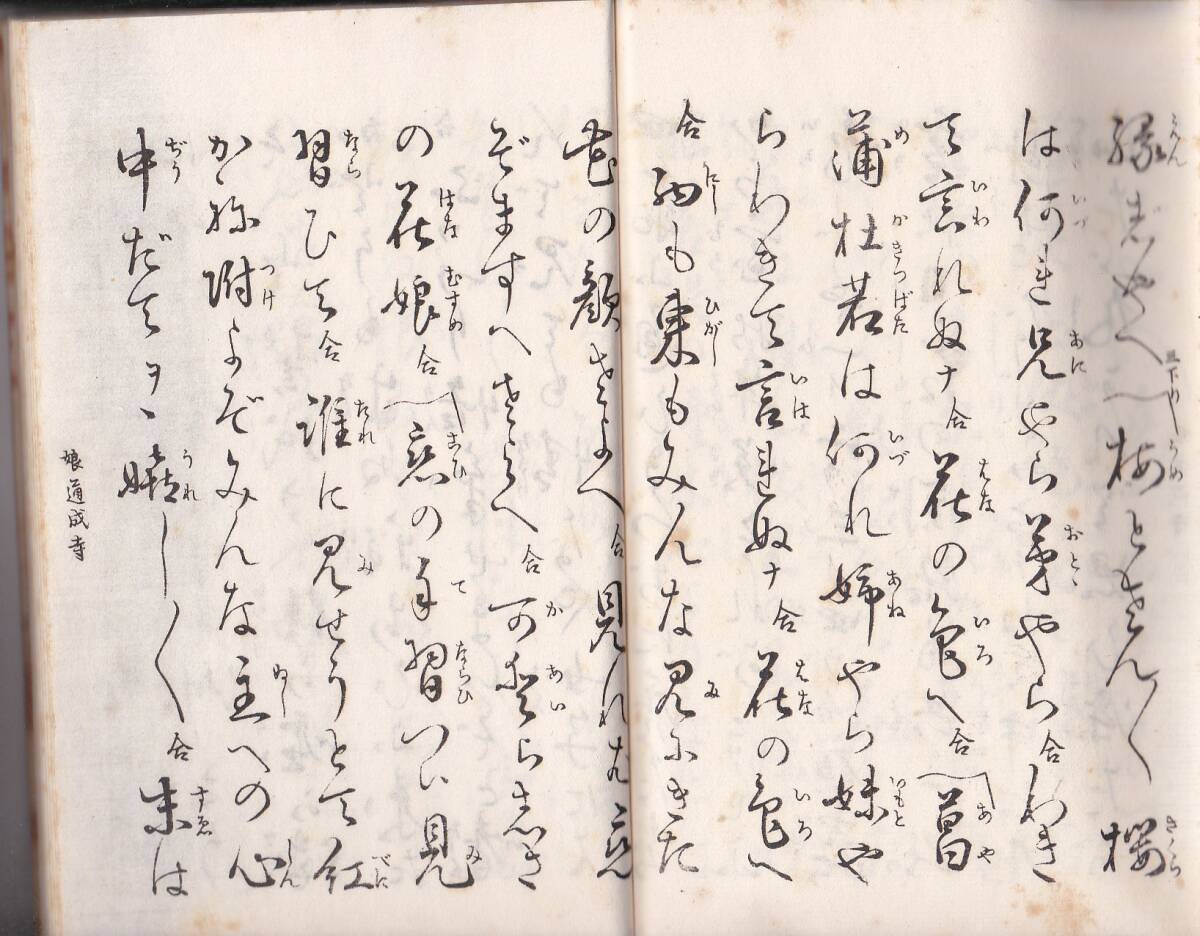 縁じやへ〽梅とさん〱桜
は何れ兄やら弟やら合わき
て言れぬナ合花の色へ合〽菖
蒲杜若は何れ姉やら妹や
らわきて言れぬナ合花の色へ
合西も東もみんな見にきた
花の顔さよへ合見れば恋
ぞますへさよへ合可愛らしさ
の花娘合〽恋の手習つい見
習ひて合誰に見せうとて紅
かね附よぞみんな主への心
中だてヲヽ嬉し〱合末は
娘道成寺